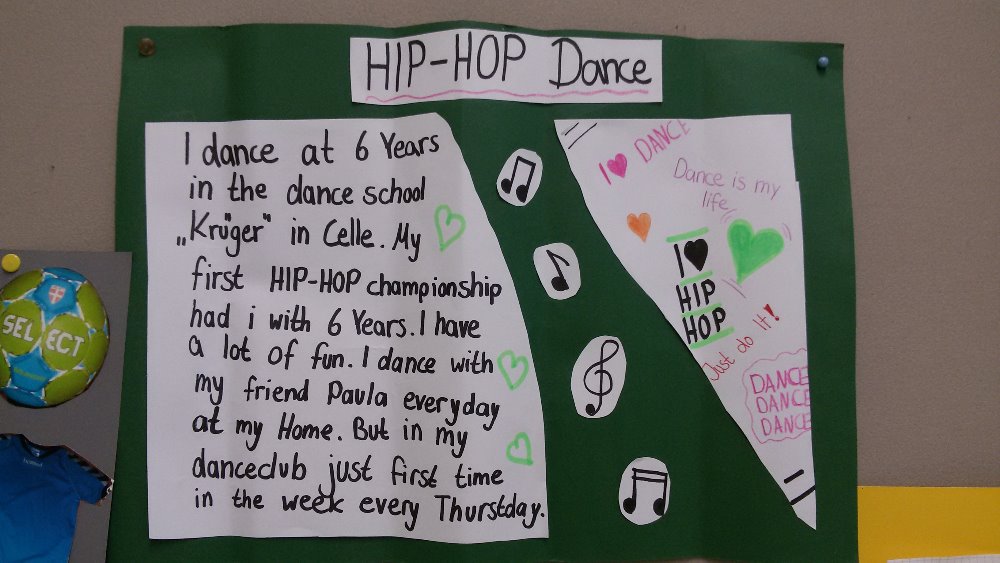 HIP-HOP Dance
I dance at 6 Years
in the dance school
„Krüger" in Celle. My
first HIP-HOP championship
had i with 6 Years. I have
a lot of fun. I dance with
my friend Paula everyday
at my Home. But in my
danceclub just first time
in the week every Thurstday.
I ♥ DANCE
Dance is my
life
I ♥
HIP
HOP
Just do It!
DANCE
DANCE
DANCE
SELECT